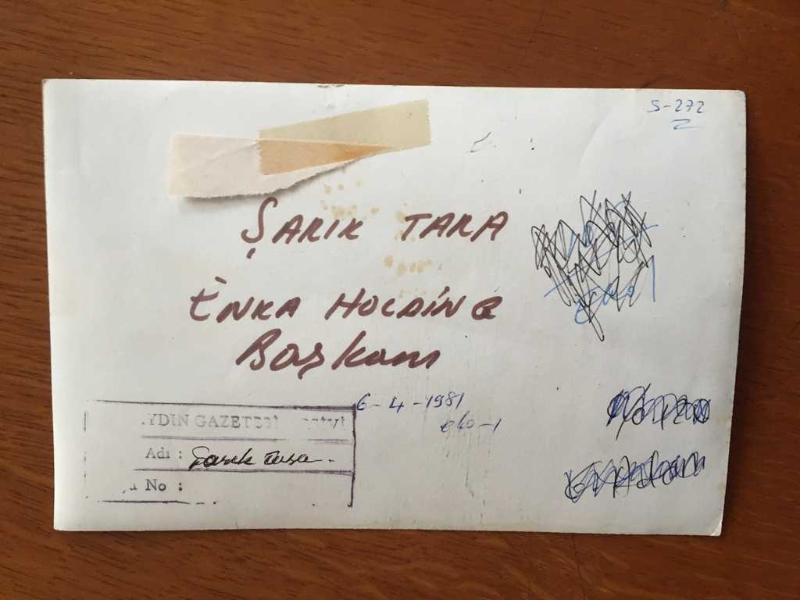 S-272
ŞARIK TARA
ENKA HOLDİNG
Başkanı
6-4-1981
eko-1
YDIN GAZETESİ
Adı : Şarık Tara
No :